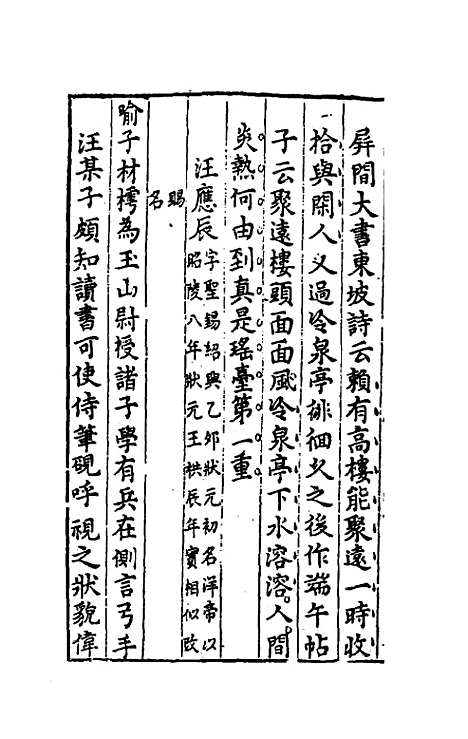 屛間大書東坡詩云賴有高樓能聚遠一時收
拾與閑人又過冷泉亭徘徊久之後作端午帖
子云聚遠樓頭面面風冷泉亭下水溶溶人間
炎熱何由到真是瑤臺第一重
汪應辰
字聖錫紹興乙卯狀元初名洋帝以
昭陵八年狀元王拱辰年實相似改
賜
名
喻子材樗為玉山尉授諸子學有兵在側言弓手
汪某子頗知讀書可使侍筆硯呼視之狀貌偉